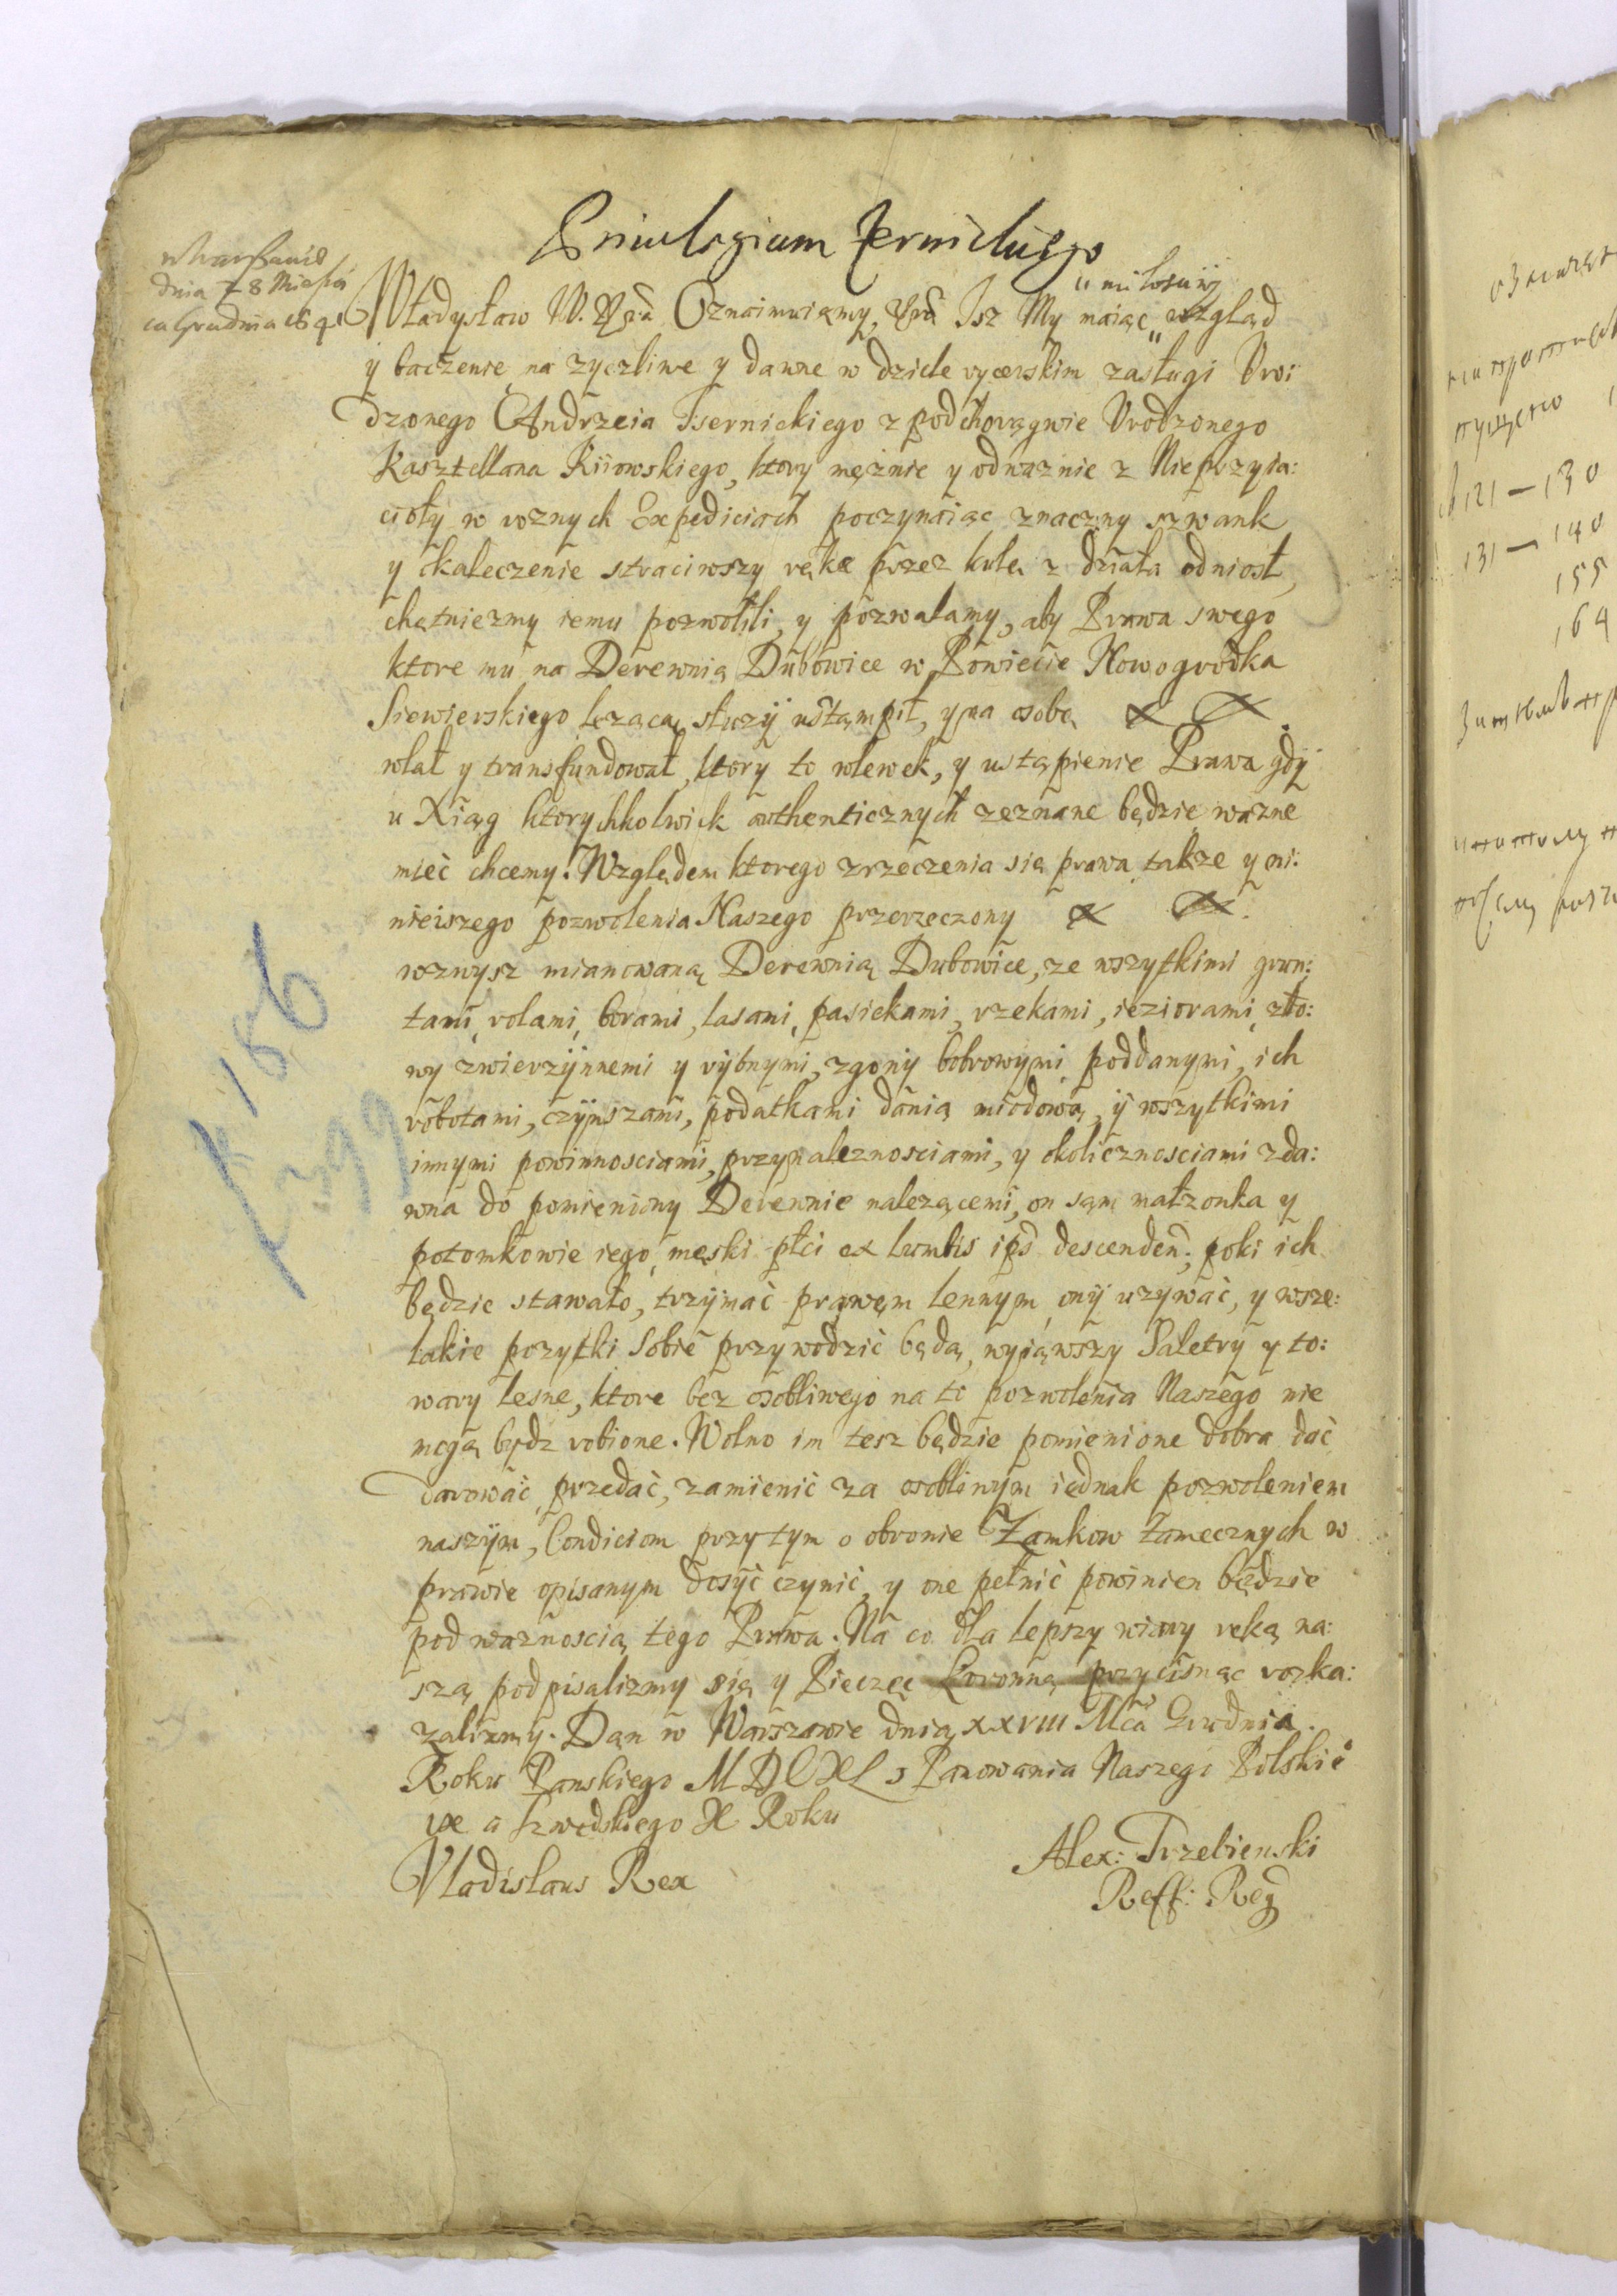 Priuilegium Jernickiego
w Warszawie
dnia 28 Miesią
ca Grudnia 1641
" miłosciwy
Władysław IV. Oznaimuiemy, Isz My maiąc " wzgląd
y baczenie na zyczliwe y dawne w dziele rycerskim zasługi Vro
dzonego Andrzeia Jsernickiego z pod chorągwie Vrodzonego
Kasztellana Kiiowskiego, ktory mężnie y odwaznie z Nieprzyia:
cioły w roznych Expediciach poczynaiąc znaczny szwank
y okaleczenie straciwszy rękę przez kulę z działa odniosł,
chętniezmy iemu pozwolili, y pozwalamy, aby Prawa swego
ktore mu na Derewnią Dubowice w Powiecie Nowogrodka
Siewierskiego lezącą słuzy ustąmpił, y na osobę
wlał y transfundował, ktory to wlewek, y ustąpienie Prawa gdy
u Xiąg ktorychkolwiek authenticznych zeznane będzie wazne
mieć chcemy. Względem ktorego zrzeczenia się prawa także y ni:
nieiszego pozwolenia Naszego przerzeczony
wzwysz mianowaną Derewnią Dubowice, ze wszytkimi grun:
tami, rolami, borami, lasami, pasiekami, rzekami, ieziorami, z ło:
wy zwierzynnemi y rybnymi, zgony bobrowymi poddanymi, ich
robotami, czynszami, podatkami danią miodową, y wszytkimi
innymi powinnosciami, przynaleznosciami, y okolicznosciami zda:
wna do pomieniony Derewnie nalezącemi, on sąm małzonka y
potomkowie iego męski płci ex lumbis ips descenden: poki ich
będzie stawało, trzymać prawem lennym ony uzywać, y wsze:
lakie pozytki sobie przywodzić będą, wyiąwszy Saletry y to:
wary lesne, ktore bez osobliwego na to pozwolenia Naszego nie
mogą bydz robione. Wolno im tesz będzie pomienione dobra dać
darować, przedać, zamienić za osobliwym iednak pozwoleniem
naszym, Condiciom przy tym o obronie Zamkow tamecznych w
prawie opisanym dosyć czynić, y one pełnić powinien będzie
pod waznoscią tego Prawa. Na co dla lepszy wiary ręką na:
szą podpisalizmy się y Pieczęc Koronną przycisnąc rozka:
zalizmy. Dan w Warszawie dnia XXVIII Mca Grudnia
Roku Panskiego MDCXLI Panowania Naszego Polskie
IX a Szwedskiego X Roku
Vladislaus Rex
Alex: Trzebienski
Reff: Reg
121 — 130
131 — 140
155
164